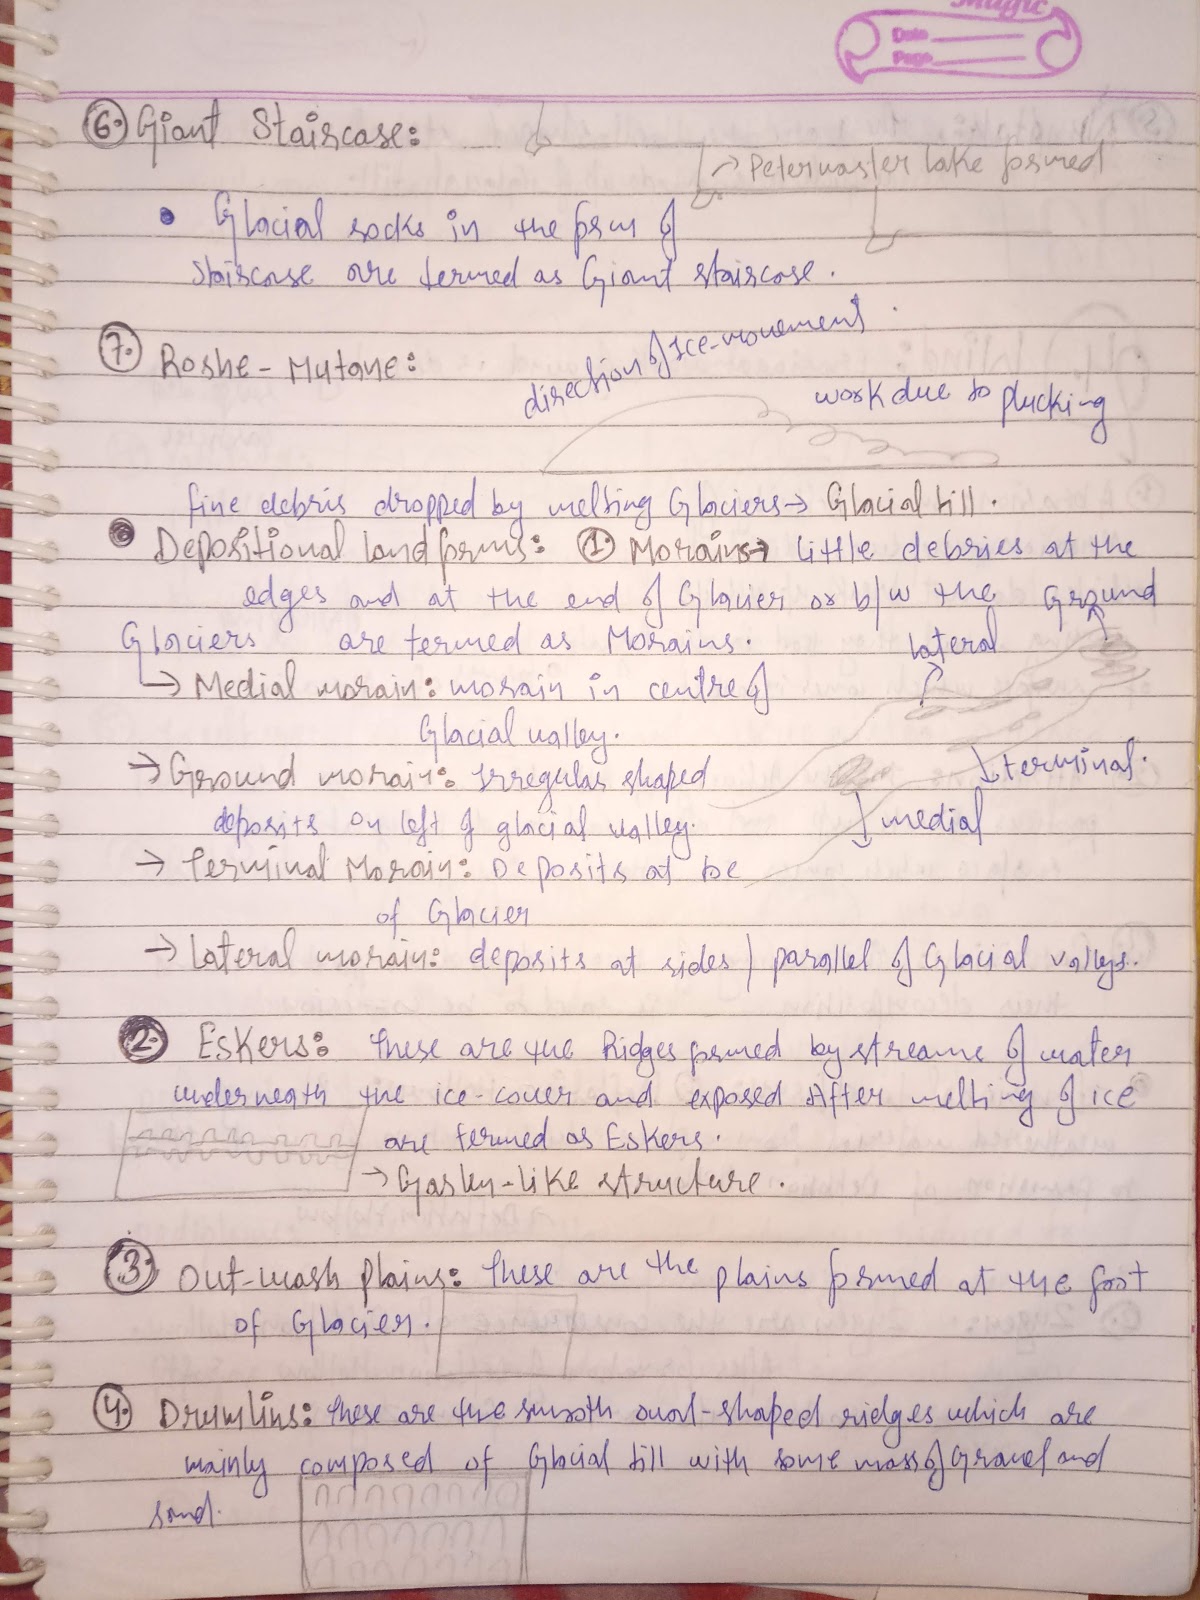 Magic
Date
Page
6. Giant Staircase:
→ Paternaster lake formed
• Glacial rocks in the form of
staircase are termed as Giant staircase.
7. Roshe-Mutane:
direction of Ice-movement
work due to plucking
fine debris dropped by melting Glaciers → Glacial till.
• Depositional landforms: 1. Morains → little debries at the
edges and at the end of Glacier or b/w the Ground
Glaciers are termed as Morains. lateral
→ Medial morain: morain in centre of
Glacial valley.
→ Ground morain: Irregular shaped terminal.
deposits on left of glacial valley. medial
→ Terminal Morain: Deposits at be
of Glacier
→ Lateral morain: deposits at sides / parallel of Glacial valleys.
2. Eskers: These are the Ridges formed by streams of water
underneath the ice-cover and exposed After melting of ice
are termed as Eskers.
→ like structure.
3. Out-wash plains: These are the plains formed at the foot
of Glacier.
4. Drumlins: These are the smooth oval-shaped ridges which are
mainly composed of Glacial till with some mass of Gravel and
sand.